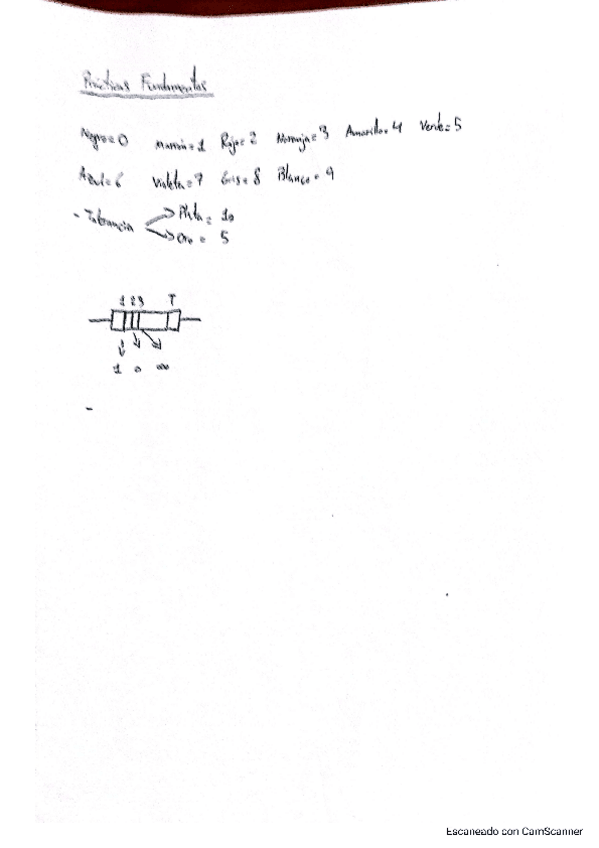 Prácticas Fundamentos
Negro=0 Marrón=1 Rojo=2 Naranja=3 Amarillo=4 Verde=5
Azul=6 Violeta=7 Gris=8 Blanco=9
- Tolerancia Plata= 10
Oro = 5
1 2 3 T
1 0
-
Escaneado con CamScanner